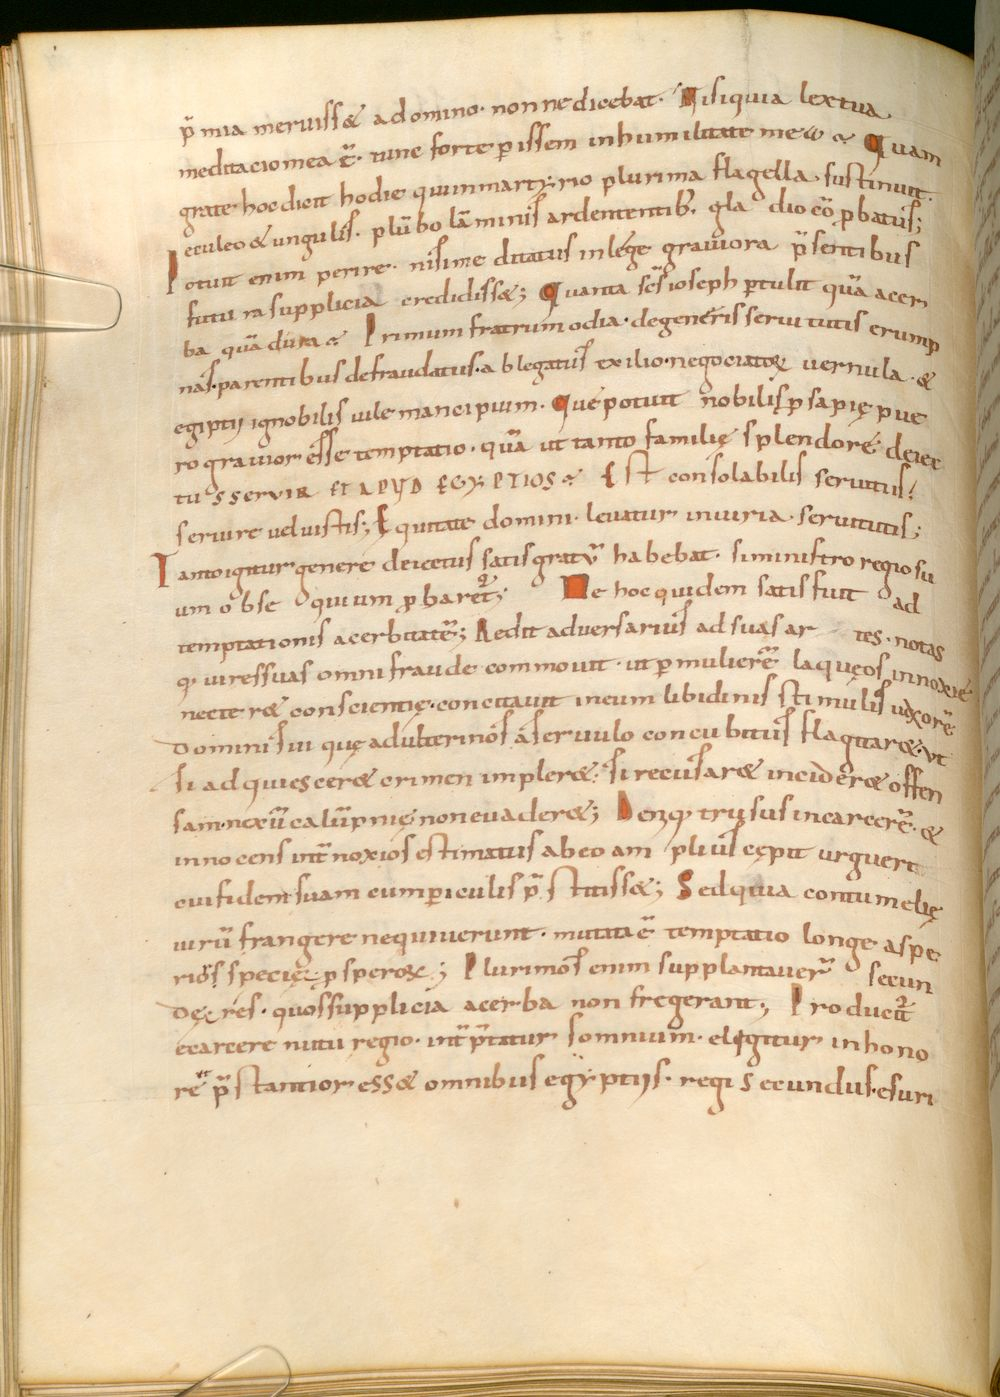 p̄mia meruiss& a domino· nonne dicebat· Nisi quia lex tua
meditacio mea ē· tunc forte perissem in humilitate mea Quam
grate hoc dicit hodie qui in martyrio plurima flagella sustinuit·
eculeo & ungulis· plūbo lāminis ardententib; gladio cōprobatus;
Potuit enim perire· nisi meditatus in lege grauiora p̄sentibus
futura supplicia credidiss&; Quanta scs ioseph pertulit quā acer
ba quā dura Primum fratrum odia· degeneris seruitutis erump
nas· parentibus defraudatus· ablegatus exilio· negociatorꝝ uernula· &
egiptij ignobilis uile mancipium· Quę potuit nobilis prosapię pue
ro grauior esse temptatio· quā ut tanto familię splendore deiec
tus SERVIR ET APUD EGYPTIOS Est consolabilis seruitus!
seruire uel uistis; Equitate domini· leuatur iniuria· seruitutis;
Tanto igitur genere deiectus satis gratū habebat· si ministro regio su
um obsequium probaret̄; Ne hoc quidem satis fuit ad
temptationis acerbitatē; Redit aduersarius ad suas artes· notas
q; uires suas omni fraude commouit· ut per mulierē laquęos innoxię
necteret conscientię· concitauit in eum libidinis stimulis uxorē
dominis sui quę adulterinos a seruulo concubitus flagitar&· ut
si adquiescer& crimen impler&· si recusar& incider& offen
sam· nexū calūpnię non euader&; Denq; trusus in carcerē· &
innocens int̄ noxios estimatus ab eo ampli us cępit urguere
cui fidem suam eum periculis p̄stitiss&; Sed quia contumelię
uirū frangere nequiuerunt· mutata ē temptatio longe aspe
rior specię prosperorꝝ; Plurimos enim supplantauer̄ secun
dę res· quos supplicia acerba non fregerant; Producit̄
e carcere nutu regio· int̄p̄tatur somnium· eligitur in hono
rē ut p̄stantior ess& omnibus egyptijs· regi secundus· esuri